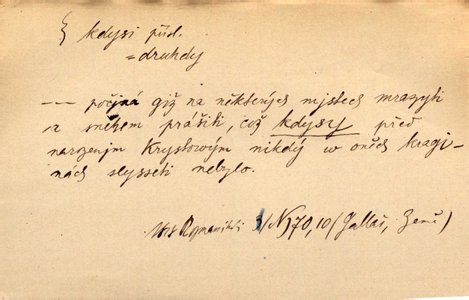 kdysi přísl.
= druhdy
--- počjná giž na některých mjstech mrazyti
a sněhem prášiti, což kdysy před
narozenjm Krystowým nikdý w oněch kragi-
nách slysseti nebylo.
3/N170,10 (Gallaš, Země)